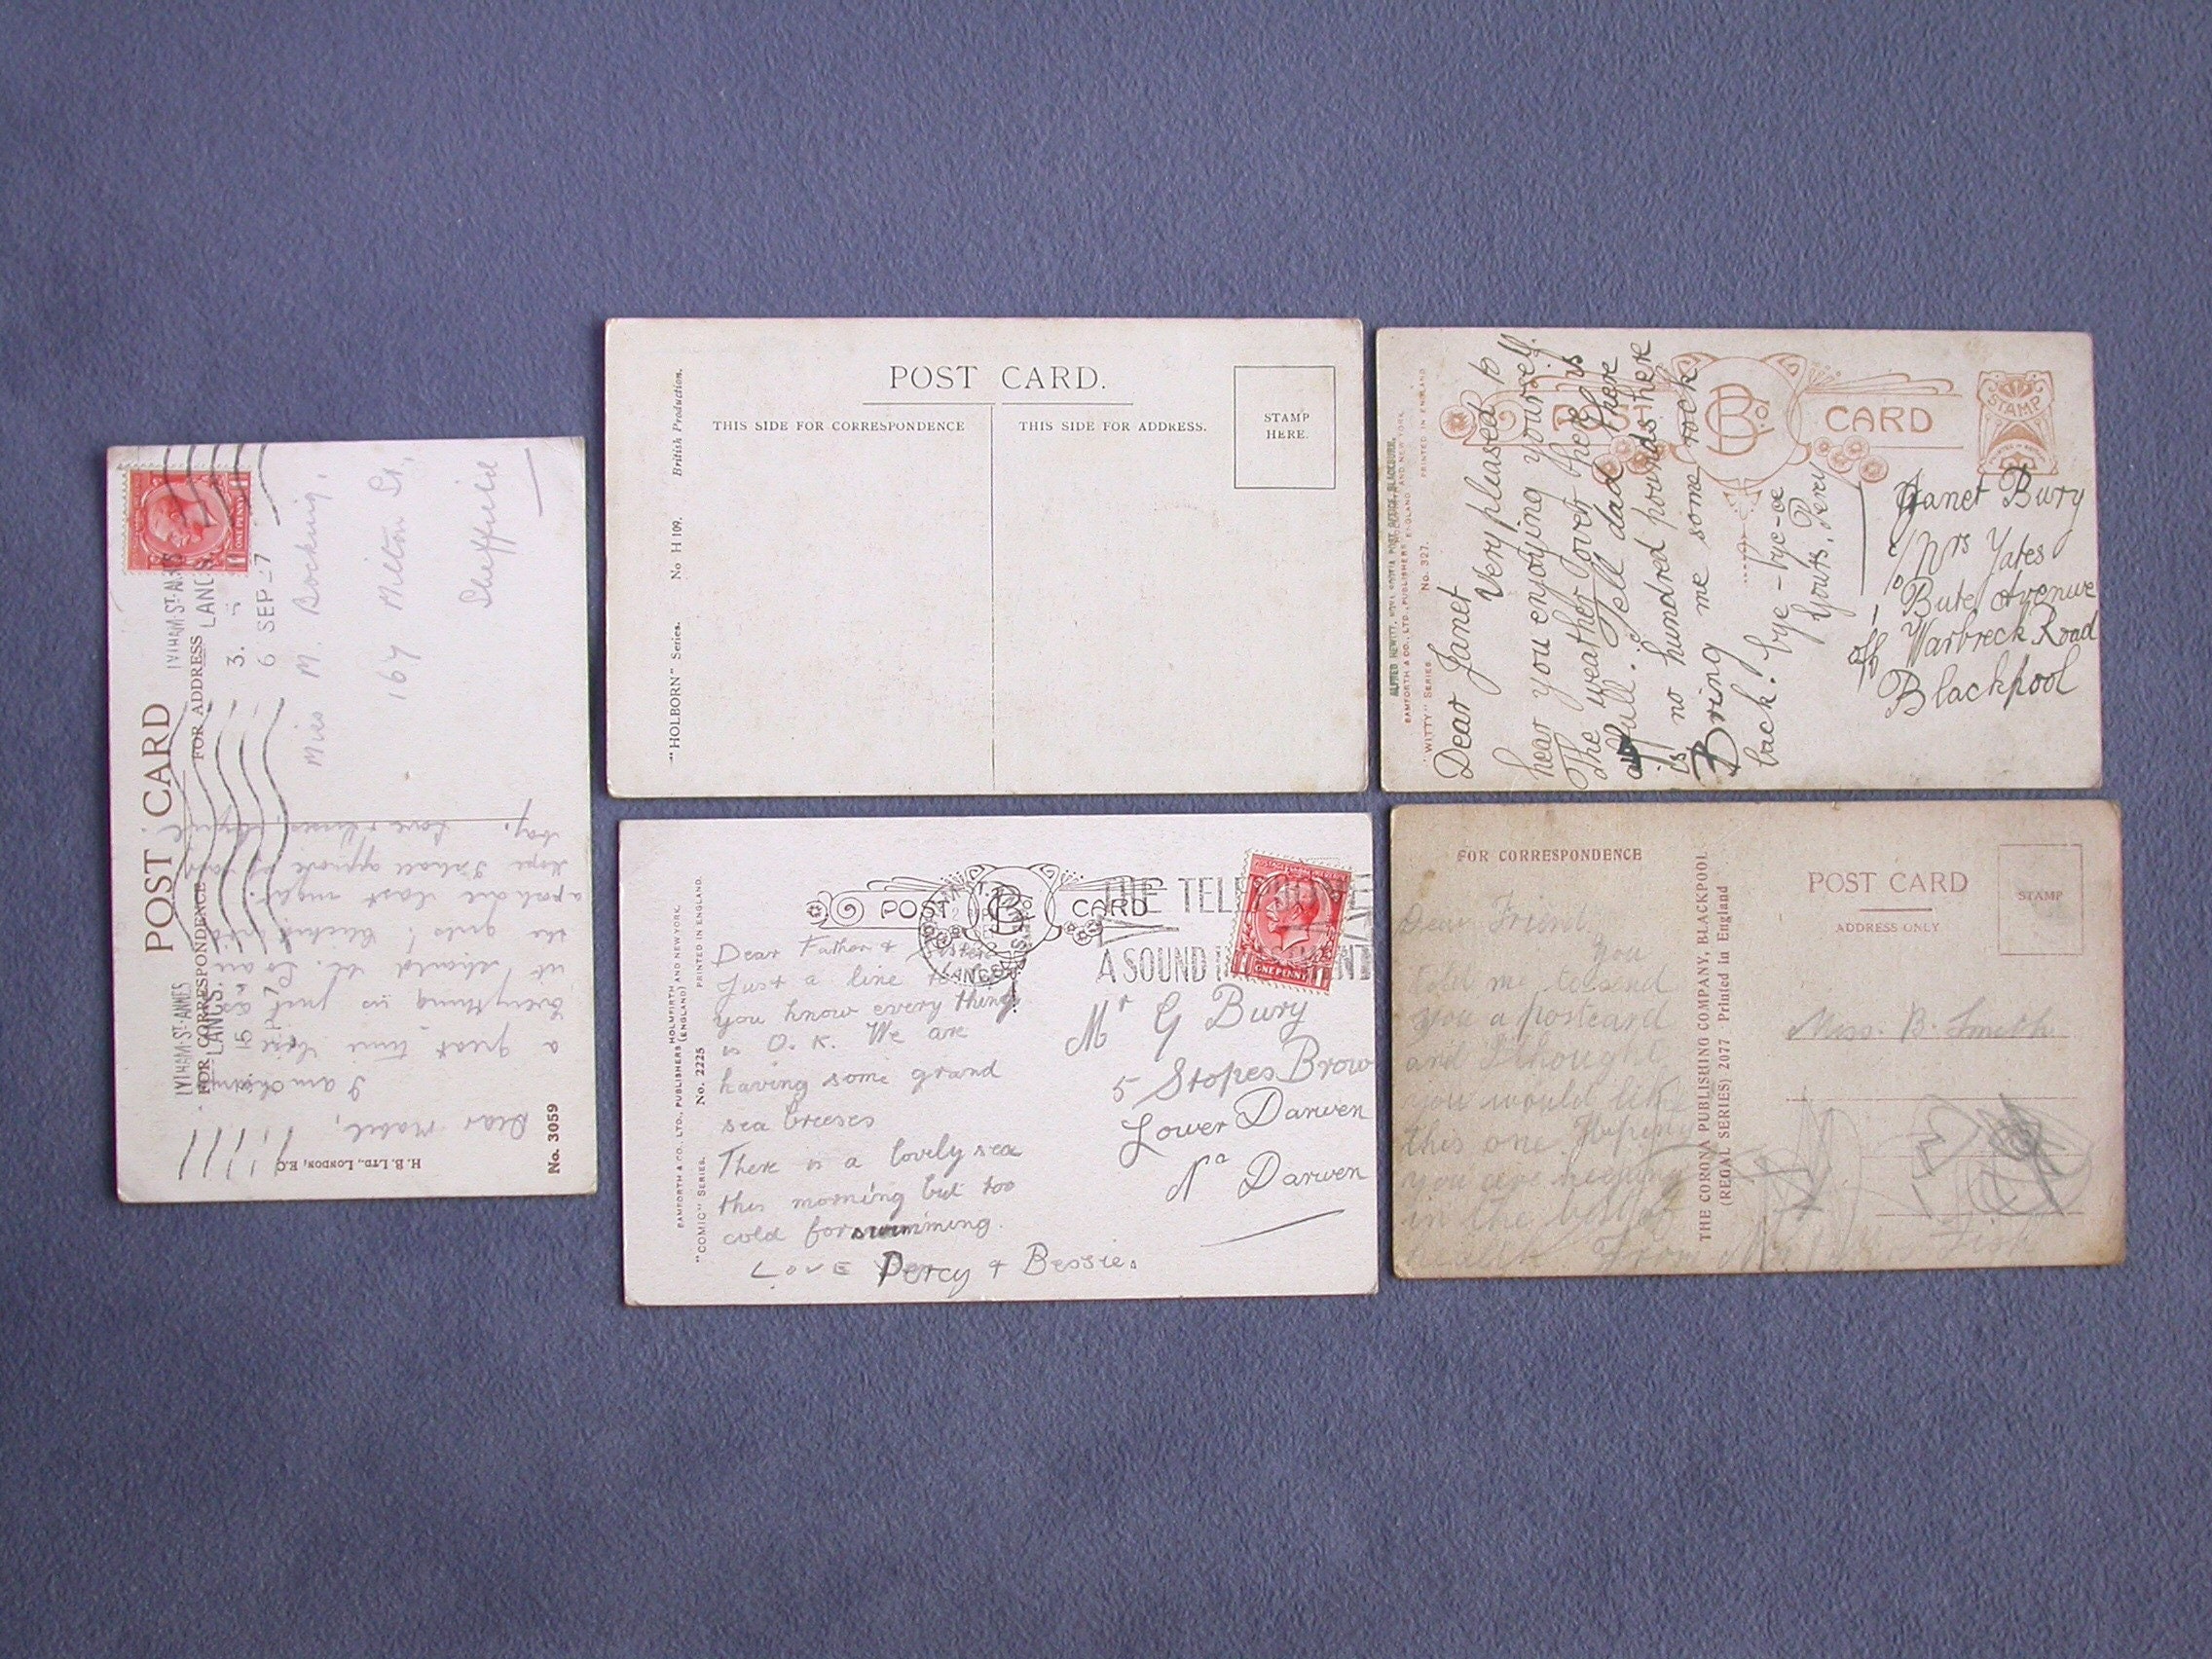 POST CARD
FOR ADDRESS
FOR CORRESPONDENCE
LYTHAM-ST-ANNES
LANCS.
6 SEP 27
LYTHAM-ST-ANNES
LANCS.
Miss M. Bocking,
167 Milton St,
Sheffield
Dear Mabel,
I am having
a great time here
Everything is just as
it should be.
the girls!
last night.
hope I shall approve of
H. B. LTD., LONDON, E.C.
No. 3059
POST CARD.
THIS SIDE FOR CORRESPONDENCE
THIS SIDE FOR ADDRESS.
STAMP
HERE.
"HOLBORN" Series. No H 109. British Production.
POST CARD
STAMP
BAMFORTH & CO., LTD., PUBLISHERS ENGLAND AND NEW YORK.
"WITTY" SERIES. No. 327. PRINTED IN ENGLAND
Dear Janet
Very pleased to
hear you enjoying yourself.
The weather over here is
awfull. Tell dad there
is no hundred pounds here
Bring me some rock
back. bye-bye-ee
Yours, Percy
Janet Bury
c/o Mrs Yates
1 Bute Avenue
off Warbreck Road
Blackpool
POST CARD
THE TELEPHONE
A SOUND INVESTMENT
ONE PENNY
BAMFORTH & CO., LTD., PUBLISHERS HOLMFIRTH (ENGLAND) AND NEW YORK.
"COMIC" SERIES. No. 2225 PRINTED IN ENGLAND.
Dear Father & Sister
Just a line to
you know every thing
is O.K. We are
having some grand
sea breeses
There is a lovely sea
this morning but too
cold for swimming.
LOVE Percy & Bessie.
Mr G Bury
5 Stopes Brow
Lower Darwen
Nr Darwen
FOR CORRESPONDENCE
POST CARD
ADDRESS ONLY
STAMP
THE CORONA PUBLISHING COMPANY, BLACKPOOL
(REGAL SERIES) 2077 Printed in England
Dear Friend
You
told me to send
you a postcard
and I thought
you would like
this one. Hoping
you are keeping
in the best of
health From
Miss. B. Smith